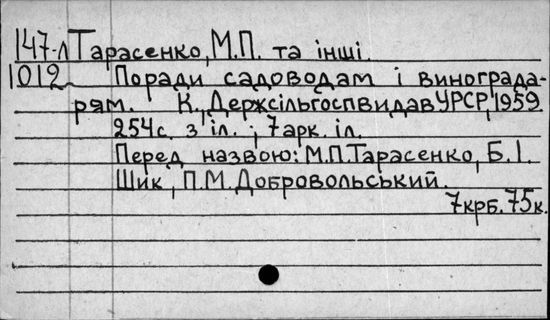 147-л Тарасенко, М.П. та інші.
1012 Поради садоводам і винограда-
рям. К., Держсільгоспвидав УРСР, 1959
254 с. з іл. ; 7 арк. іл.
Перед назвою: М.П. Тарасенко, Б.І.
Шик, П.М. Добровольський.
7 крб. 75 к.